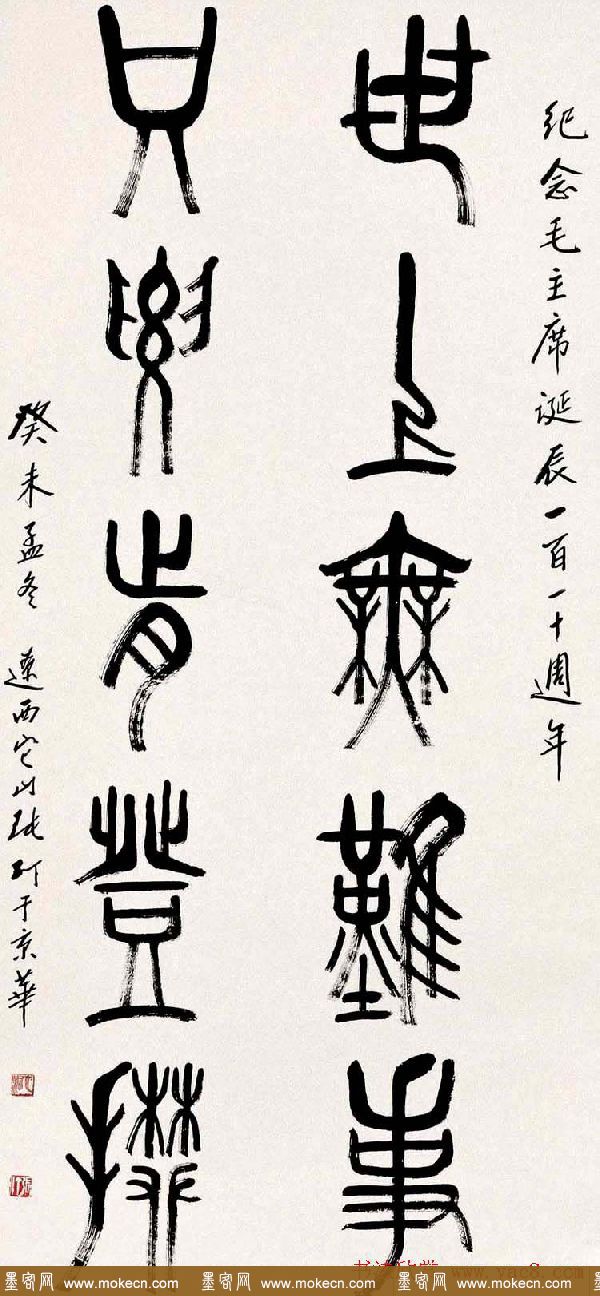 纪念毛主席诞辰一百一十週年
世上無難事
只要肯登攀
癸未孟冬 遼西它山張　于京華
书法欣赏 www.yac8.com
墨客网 www.mokecn.com 墨客网 www.mokecn.com 墨客网 www.mokecn.com